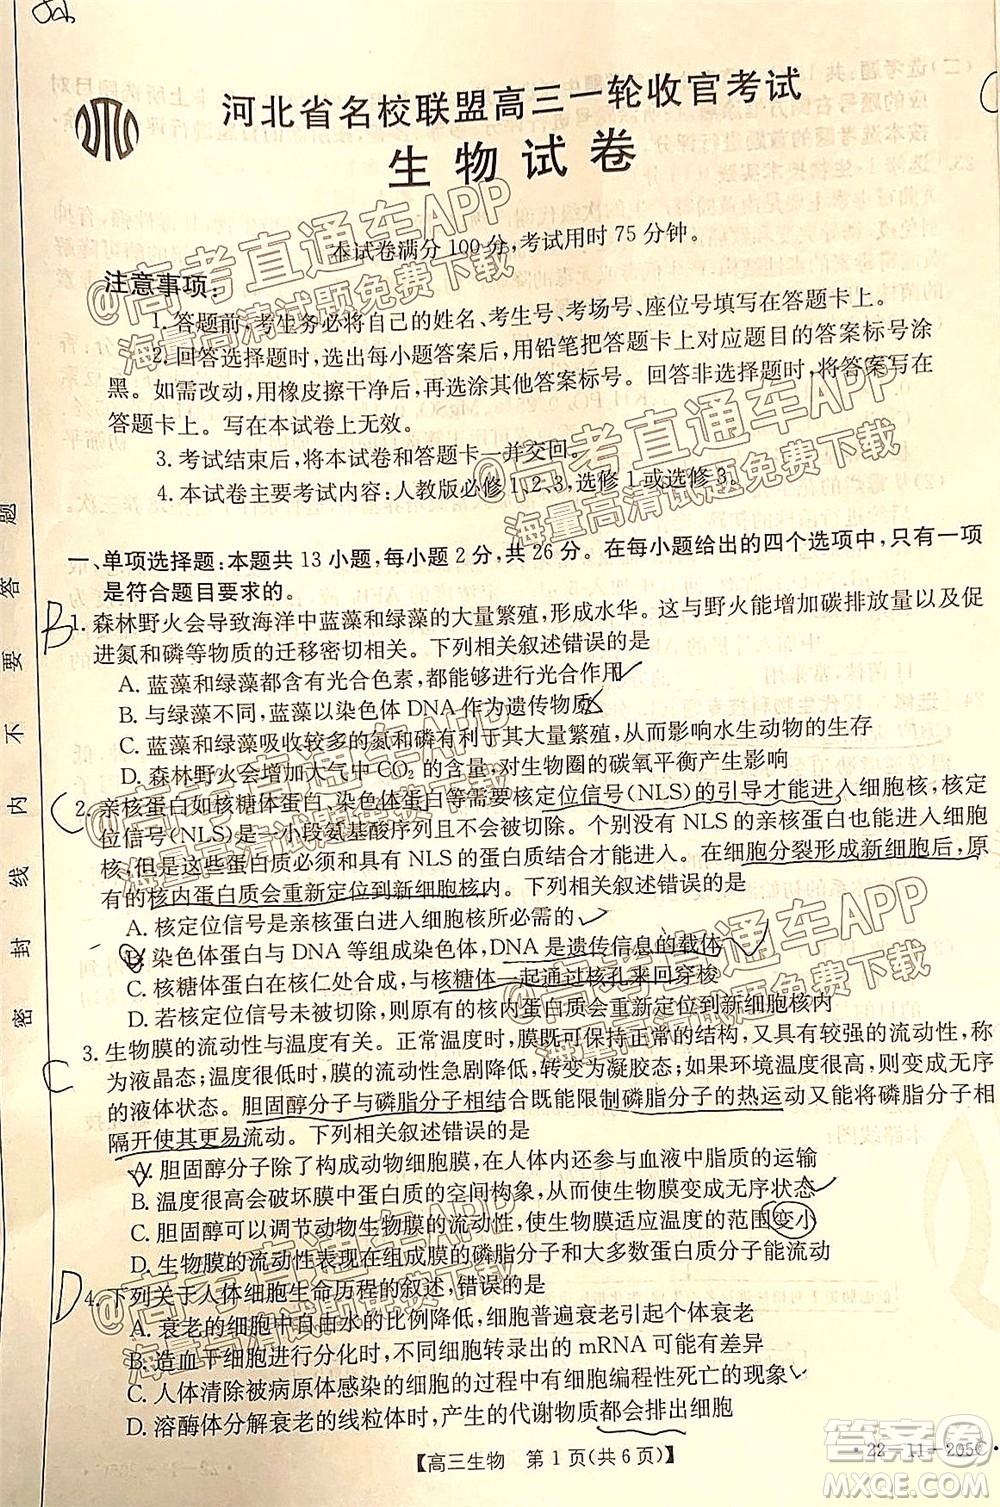 河北省名校联盟高三一轮收官考试
生物试卷
本试卷满分100分,考试用时75分钟。
注意事项:
1. 答题前,考生务必将自己的姓名、考生号、考场号、座位号填写在答题卡上。
2. 回答选择题时,选出每小题答案后,用铅笔把答题卡上对应题目的答案标号涂
黑。如需改动,用橡皮擦干净后,再选涂其他答案标号。回答非选择题时,将答案写在
答题卡上。写在本试卷上无效。
3. 考试结束后,将本试卷和答题卡一并交回。
4. 本试卷主要考试内容:人教版必修1、2、3,选修1或选修3。
一、单项选择题:本题共13小题,每小题2分,共26分。在每小题给出的四个选项中,只有一项
是符合题目要求的。
B
1. 森林野火会导致海洋中蓝藻和绿藻的大量繁殖,形成水华。这与野火能增加碳排放量以及促
进氮和磷等物质的迁移密切相关。下列相关叙述错误的是
A. 蓝藻和绿藻都含有光合色素,都能够进行光合作用
B. 与绿藻不同,蓝藻以染色体DNA作为遗传物质
C. 蓝藻和绿藻吸收较多的氮和磷有利于大量繁殖,而影响水生动物的生存
D. 森林野火会增加大气中CO₂的含量,对生物圈的碳氧平衡产生影响
C
2. 亲核蛋白如核糖体蛋白、染色体蛋白等需要核定位信号(NLS)的引导才能进入细胞核,核定
位信号(NLS)是一小段氨基酸序列且不会被切除。个别没有NLS的亲核蛋白也能进入细胞
核,但是这些蛋白质必须和具有NLS的蛋白质结合才能进入。在细胞分裂形成新细胞后,原
有的核内蛋白质会重新定位到新细胞核内。下列相关叙述错误的是
A. 核定位信号是亲核蛋白进入细胞核所必需的
B. 染色体蛋白与DNA等组成染色体,DNA是遗传信息的载体
C. 核糖体蛋白在核仁处合成,与核糖体一起通过核孔来回穿梭
D. 核定位信号未被切除,则原有的核内蛋白质可重新定位到新细胞核内
C
3. 生物膜的流动性与温度有关。正常温度时,膜既可保持正常的结构,又具有较强的流动性,称
为液晶态;温度很低时,膜的流动性急剧降低,转变为凝胶态;温度很高时,膜转变成无序排列
的液体状态。胆固醇分子与磷脂分子相结合既能限制磷脂分子的热运动又能将磷脂分子相
隔开使其更易流动。下列相关叙述错误的是
A. 胆固醇分子除了构成动物细胞膜以外,还参与血液中脂质的运输
B. 温度很高会破坏膜中蛋白质的空间结构,使生物膜变成无序状态
C. 胆固醇可以调节动物生物膜的流动性,使生物膜适应温度的范围变小
D. 生物膜的流动性表现在组成膜的磷脂分子和大多数蛋白质分子能运动
D
4. 下列关于人体细胞生命历程的叙述,错误的是
A. 衰老的细胞中自由水的比例降低,细胞普遍衰老引起个体衰老
B. 造血干细胞进行分化时,不同细胞转录出的mRNA可能有差异
C. 人体清除被病原体感染的细胞时有细胞编程性死亡的现象
D. 溶酶体分解衰老的线粒体时,产生的代谢物质全部排出细胞
【高三生物 第1页(共6页)】
·22-11-205C·
密 封 线 内 不 要 答 题
@高考直通车APP
海量高清试题免费下载
@高考直通车APP
海量高清试题免费下载
@高考直通车APP
海量高清试题免费下载
@高考直通车APP
海量高清试题免费下载
@高考直通车APP
海量高清试题免费下载
答案圈
MXQE.COM